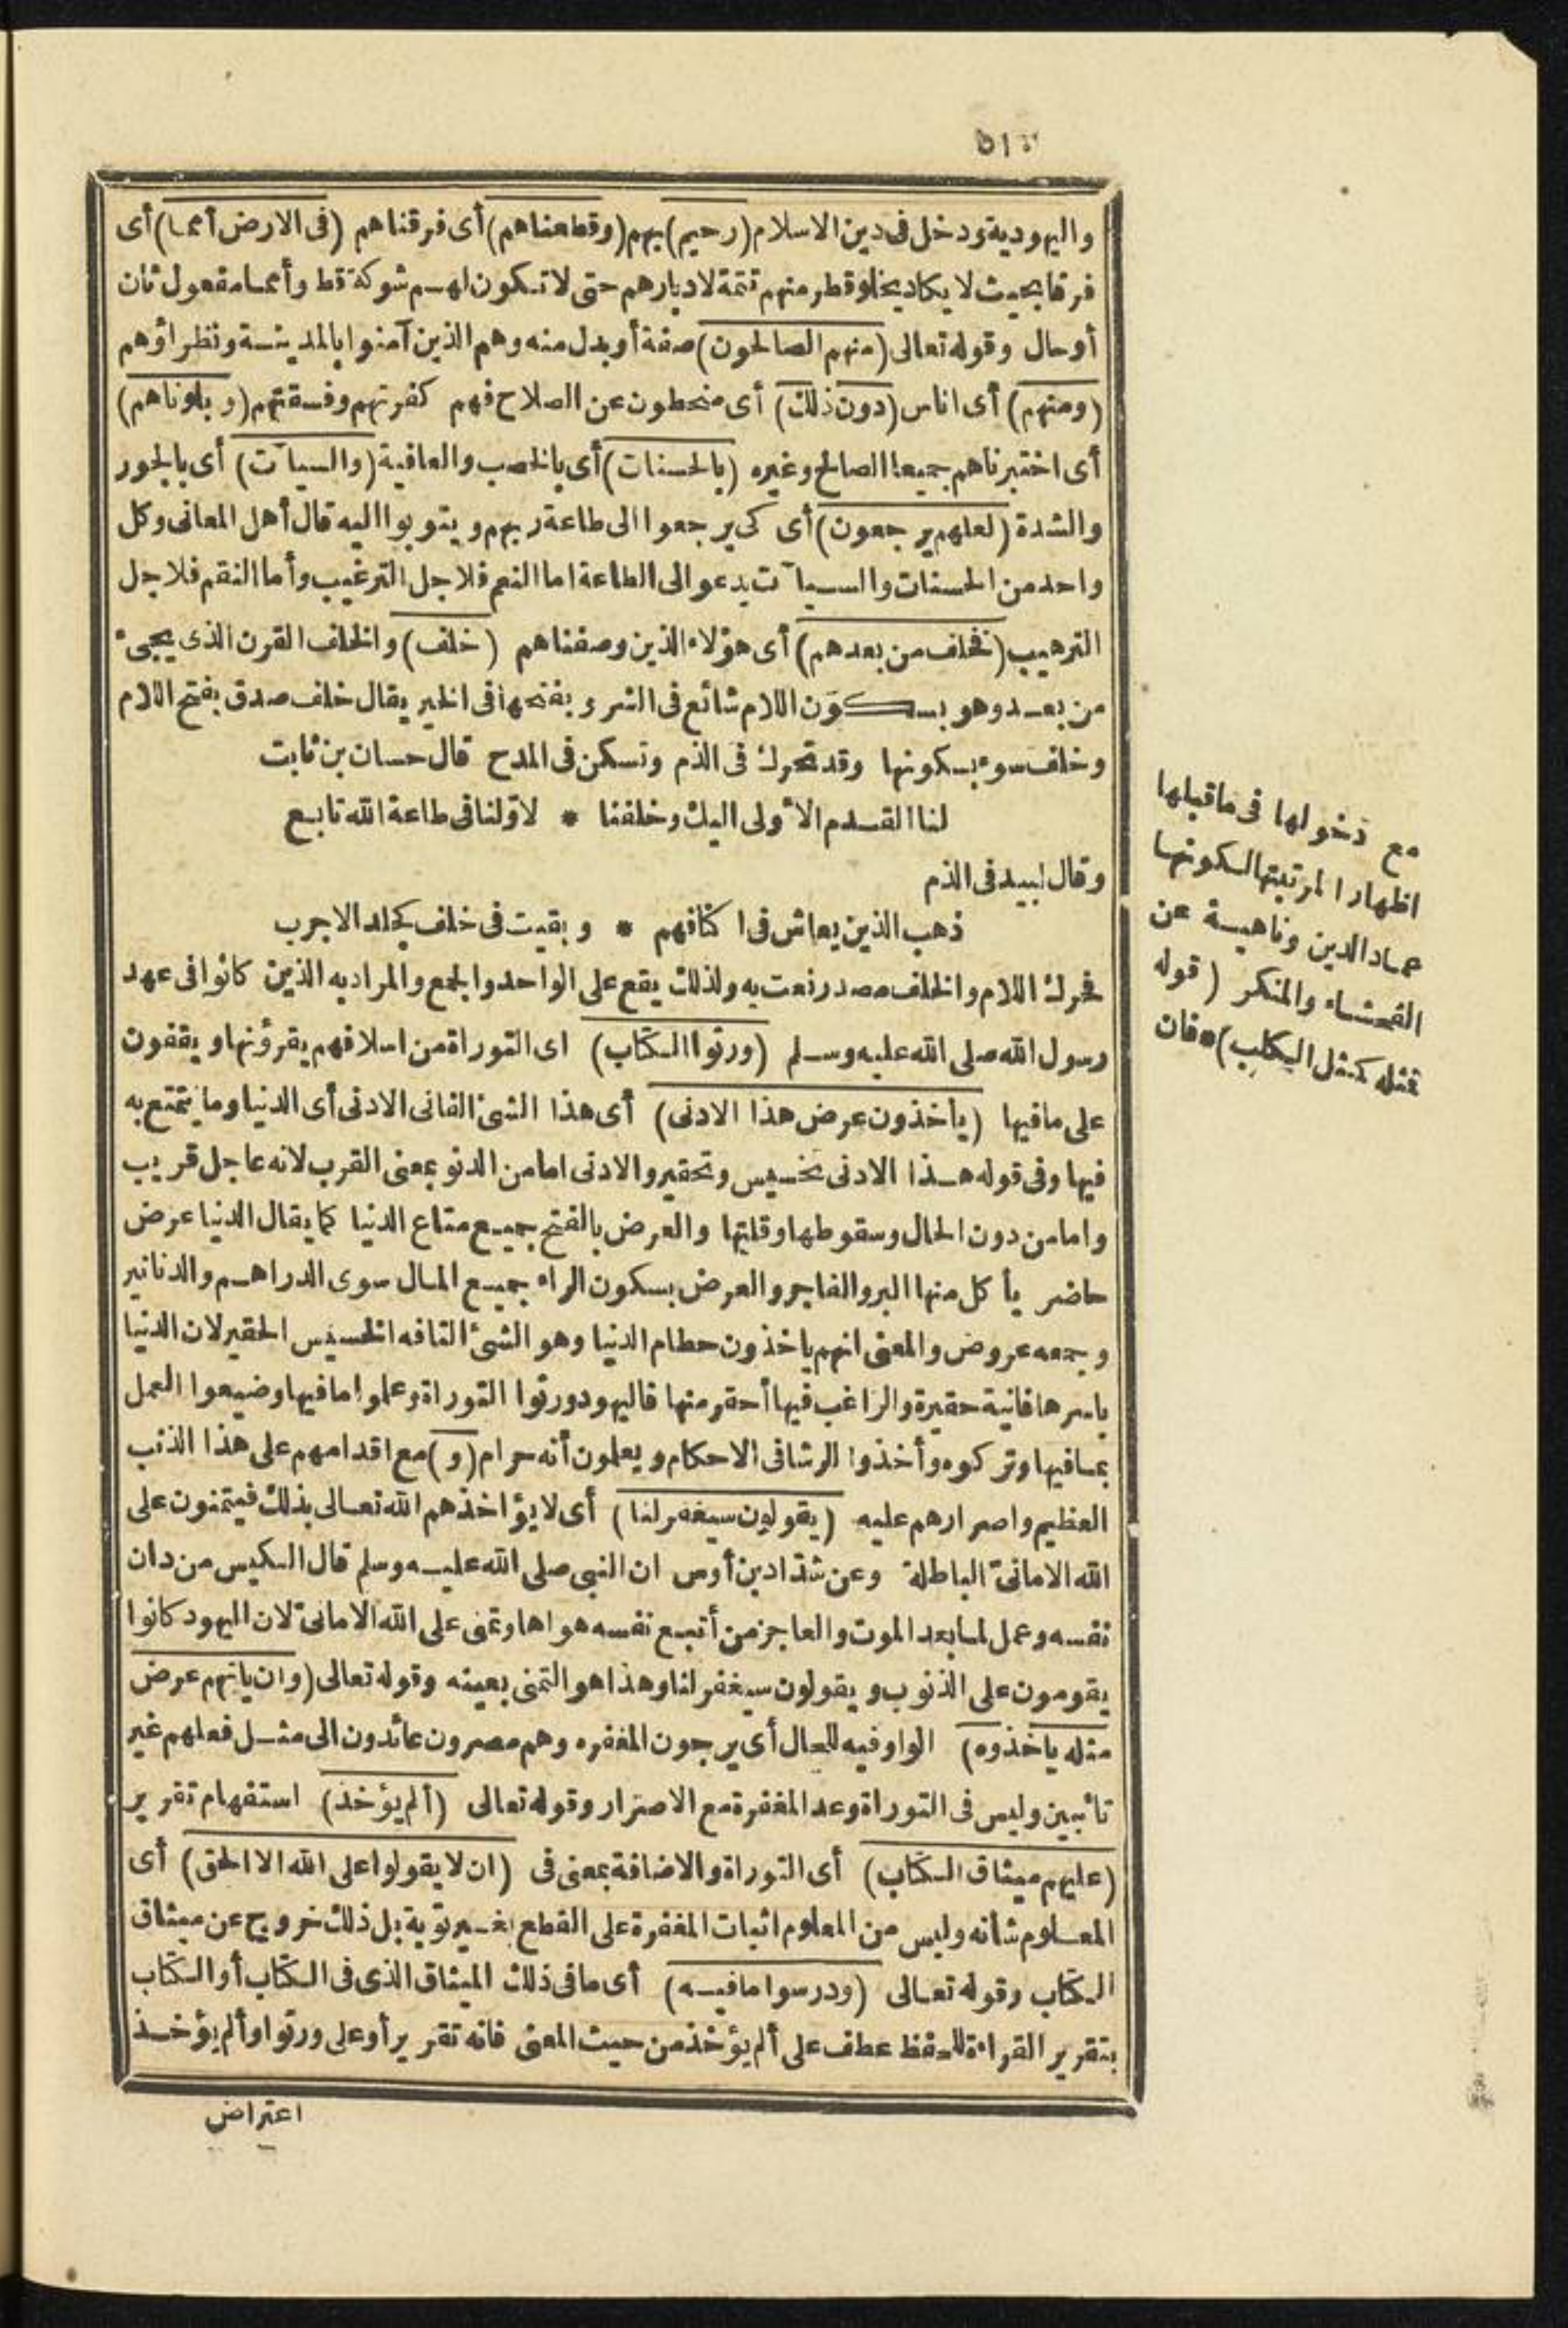 واليهودية ودخل فى دين الاسلام (رحيم) بهم (وقطعناهم) أى فرقناهم (فى الارض أمما) أى
فرقا بحيث لا يكاد يخلو قطر منهم تتمة لادبارهم حتى لا تكون لهم شوكة قط وأمما مفعول ثان
أو حال وقوله تعالى (منهم الصالحون) صفة أو بدل منه وهم الذين آمنوا بالمدينة ونظراؤهم
(ومنهم) أى اناس (دون ذلك) أى منحطون عن الصلاح فهم كفرتهم وفسقتهم (وبلوناهم)
أى اختبرناهم جميعا الصالح وغيره (بالحسنات) أى بالخصب والعافية (والسيآت) أى بالجور
والشدة (لعلهم يرجعون) أى كى يرجعوا الى طاعة ربهم ويتوبوا اليه قال أهل المعانى وكل
واحد من الحسنات والسيآت يدعو الى الطاعة اما النعم فلاجل الترغيب وأما النقم فلاجل
الترهيب (فخلف من بعدهم) أى هؤلاء الذين وصفناهم (خلف) والخلف القرن الذى يجىء
من بعد وهو بسكون اللام شائع فى الشر وبفتحها فى الخير يقال خلف صدق بفتح اللام
وخلف سوء بسكونها وقد تحرك فى الذم وتسكن فى المدح قال حسان بن ثابت
لنا القدم الأولى اليك وخلفنا * لاولنا فى طاعة الله تابع
وقال لبيد فى الذم
ذهب الذين يعاش فى اكنافهم * وبقيت فى خلف كجلد الاجرب
فحرك اللام والخلف مصدر نعت به ولذلك يقع على الواحد والجمع والمراد به الذين كانوا فى عهد
رسول الله صلى الله عليه وسلم (ورثوا الكتاب) اى التوراة من اسلافهم يقرؤنها ويقفون
على ما فيها (يأخذون عرض هذا الادنى) أى هذا الشئ الفانى الادنى أى الدنيا وما يتمتع به
فيها وفى قوله هذا الادنى تخسيس وتحقير والادنى اما من الدنو بمعنى القرب لانه عاجل قريب
واما من دون الحال وسقوطها وقلتها والعرض بالفتح جميع متاع الدنيا كما يقال الدنيا عرض
حاضر يأكل منها البر والفاجر والعرض بسكون الراء جميع المال سوى الدراهم والدنانير
وجمعه عروض والمعنى انهم ياخذون حطام الدنيا وهو الشئ التافه الخسيس الحقير لان الدنيا
باسرها فانية حقيرة والراغب فيها أحقر منها فاليهود ورثوا التوراة وعلموا ما فيها وضيعوا العمل
بما فيها وتركوه وأخذوا الرشا فى الاحكام ويعلمون أنه حرام (و) مع اقدامهم على هذا الذنب
العظيم واصرارهم عليه (يقولون سيغفر لنا) أى لا يؤاخذهم الله تعالى بذلك فيتمنون على
الله الامانىّ الباطلة وعن شدّاد بن أوس ان النبى صلى الله عليه وسلم قال الكيس من دان
نفسه وعمل لما بعد الموت والعاجز من أتبع نفسه هواها وتمنى على الله الامانىّ لان اليهود كانوا
يقومون على الذنوب ويقولون سيغفر لنا وهذا هو التمنى بعينه وقوله تعالى (وان ياتهم عرض
مثله ياخذوه) الواو فيه للحال أى يرجون المغفره وهم مصرون عائدون الى مثل فعلهم غير
تائبين وليس فى التوراة وعد المغفرة مع الاصرار وقوله تعالى (ألم يؤخذ) استفهام تقرير
(عليهم ميثاق الكتاب) أى التوراة والاضافة بمعنى فى (ان لا يقولوا على الله الا الحق) أى
المعلوم شأنه وليس من المعلوم اثبات المغفرة على القطع بغير توبة بل ذلك خروج عن ميثاق
الكتاب وقوله تعالى (ودرسوا ما فيه) أى ما فى ذلك الميثاق الذى فى الكتاب أو الكتاب
بتقرير القراءة للحفظ عطف على ألم يؤخذ من حيث المعنى فانه تقرير أو على ورثوا وألم يؤخذ
اعتراض
مع دخولها فى ما قبلها
اظهارا لمرتبتها لكونها
عماد الدين وناهية عن
الفحشاء والمنكر (قوله
فمثله كمثل الكلب) * فان